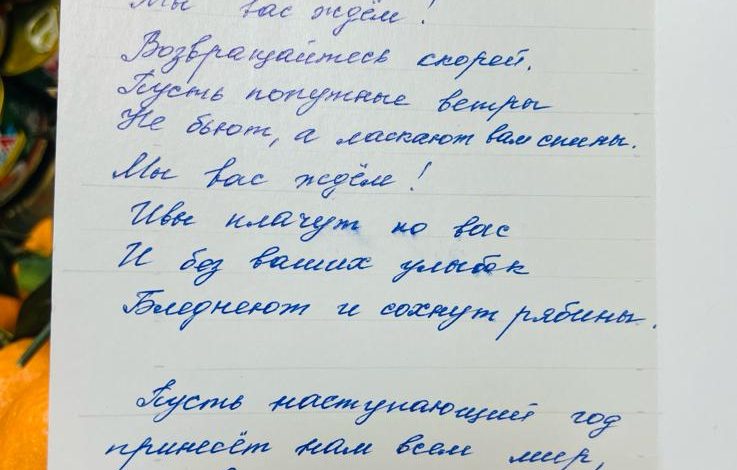 Мы вас ждём!
Возвращайтесь скорей.
Пусть попутные ветры
Не бьют, а ласкают вам спины.
Мы вас ждём!
Ивы плачут по вас
И без ваших улыбок
Бледнеют и сохнут рябины.
Пусть наступающий год
принесёт нам всем мир,